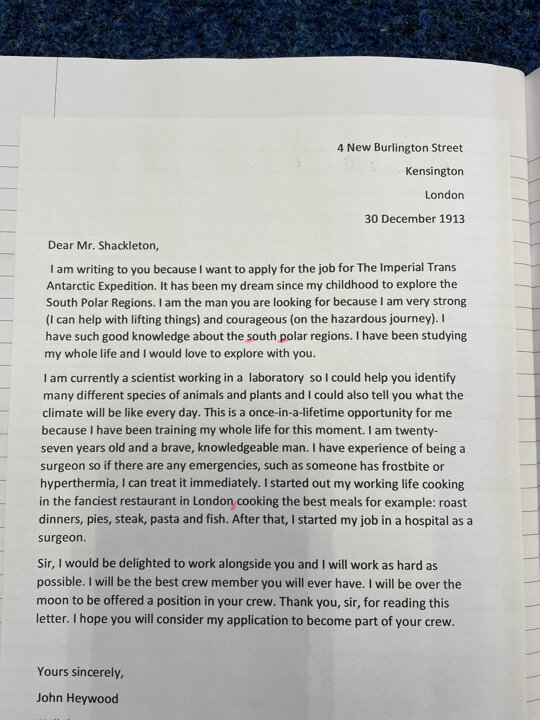 4 New Burlington Street
Kensington
London
30 December 1913
Dear Mr. Shackleton,
I am writing to you because I want to apply for the job for The Imperial Trans
Antarctic Expedition. It has been my dream since my childhood to explore the
South Polar Regions. I am the man you are looking for because I am very strong
(I can help with lifting things) and courageous (on the hazardous journey). I
have such good knowledge about the south polar regions. I have been studying
my whole life and I would love to explore with you.
I am currently a scientist working in a laboratory so I could help you identify
many different species of animals and plants and I could also tell you what the
climate will be like every day. This is a once-in-a-lifetime opportunity for me
because I have been training my whole life for this moment. I am twenty-
seven years old and a brave, knowledgeable man. I have experience of being a
surgeon so if there are any emergencies, such as someone has frostbite or
hyperthermia, I can treat it immediately. I started out my working life cooking
in the fanciest restaurant in London, cooking the best meals for example: roast
dinners, pies, steak, pasta and fish. After that, I started my job in a hospital as a
surgeon.
Sir, I would be delighted to work alongside you and I will work as hard as
possible. I will be the best crew member you will ever have. I will be over the
moon to be offered a position in your crew. Thank you, sir, for reading this
letter. I hope you will consider my application to become part of your crew.
Yours sincerely,
John Heywood